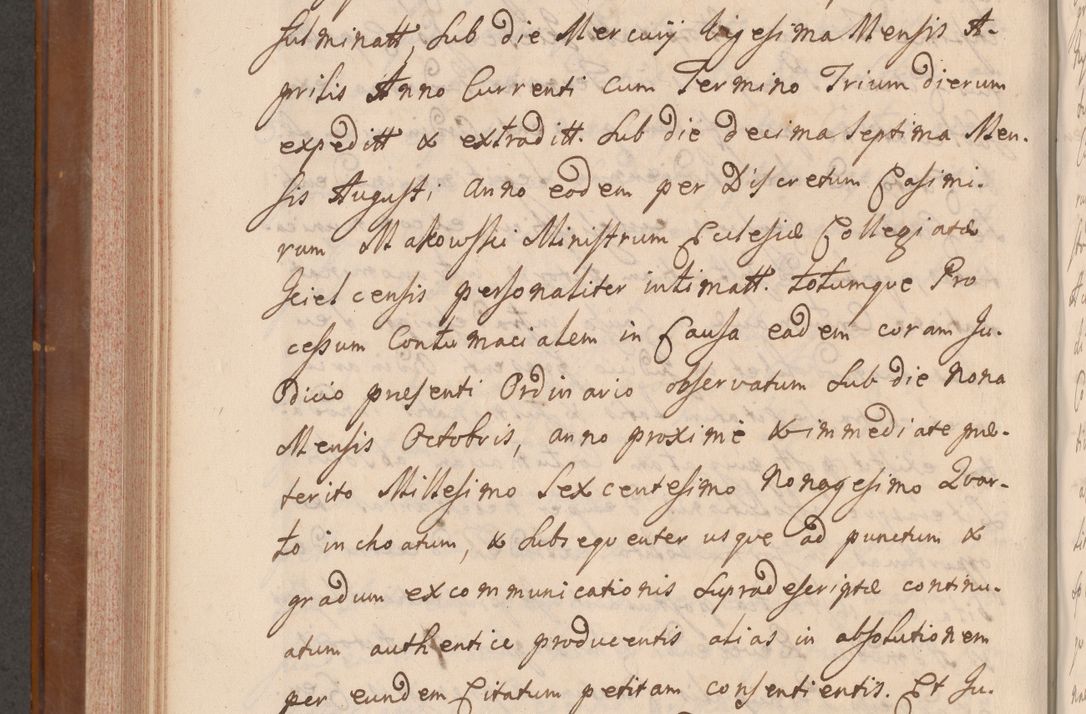 fulminatt, Sub die Mercurij Vigesima Mensis A-
prilis Anno Currenti cum Termino Trium dierum
expeditt & extraditt. Sub die decima septima Men-
sis Augusti anno eodem per Discretum Casimi-
rum Makowski Ministrum Ecclesiæ Collegiatæ
Scielcensis personaliter intimatt. totumque Pro
cessum Contumacialem in Causa eadem coram Ju-
dicio præsenti Ordinario observatum Sub die Nona
Mensis Octobris, anno proxime & immediate præ-
terito Millesimo Sexcentesimo Nonagesimo Quar-
to inchoatum, & Subsequenter usque ad punctum &
gradum excommunicationis Supradescriptæ continu-
atum authentice producentis alias in absolutionem
per eundem Citatum petitam consentientis. Et Ju-